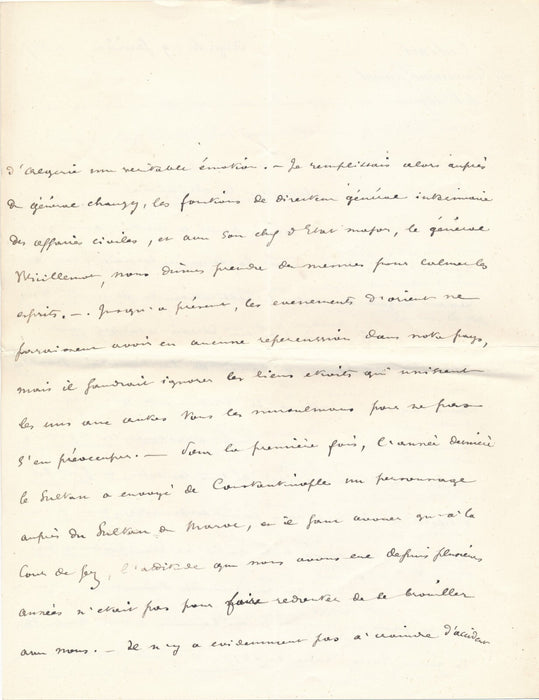 d'Algérie une veritable émotion. — Je remplissais alors auprès
du général Chanzy, les fonctions de directeur général interimaire
des affaires civiles, et avec son chef d'Etat major, le général
Wuillemot, nous dûmes prendre des mesures pour calmer les
esprits. —. Jusqu'a présent, les evenements d'orient ne
paraissent avoir eu aucune repercussion dans notre pays,
mais il faudrait ignorer les liens etroits qui unissent
les uns aux autres tous les musulmans pour ne pas
s'en préoccuper. — Pour la première fois, l'année dernière
le Sultan a envoyé de Constantinople un personnage
auprès du Sultan du Maroc, et il faut avouer qu'à la
Cour de Fez, l'attitude que nous avons eue depuis plusieurs
années n'etait pas pour faire redouter de se brouiller
avec nous. — Il n'y a evidemment pas à craindre d'accident